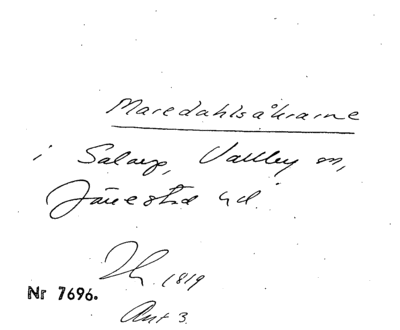 Maredahlsåkrarne
i Salarp, Vallby sn,
Järrestad hd.
1819
Nr 7696.
Akt 3.